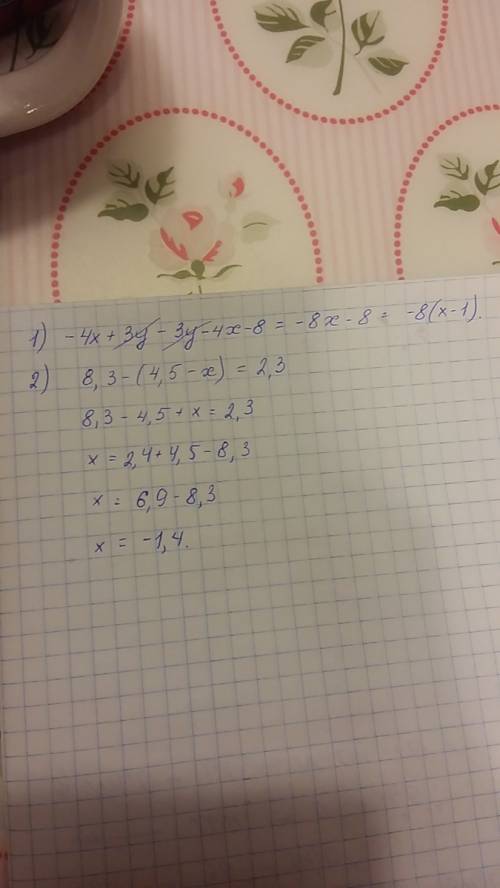 1) -4x + 3y - 3y - 4x - 8 = -8x - 8 = -8(x-1).
2) 8,3 - (4,5 - x) = 2,3
8,3 - 4,5 + x = 2,3
x = 2,4 + 4,5 - 8,3
x = 6,9 - 8,3
x = -1,4.